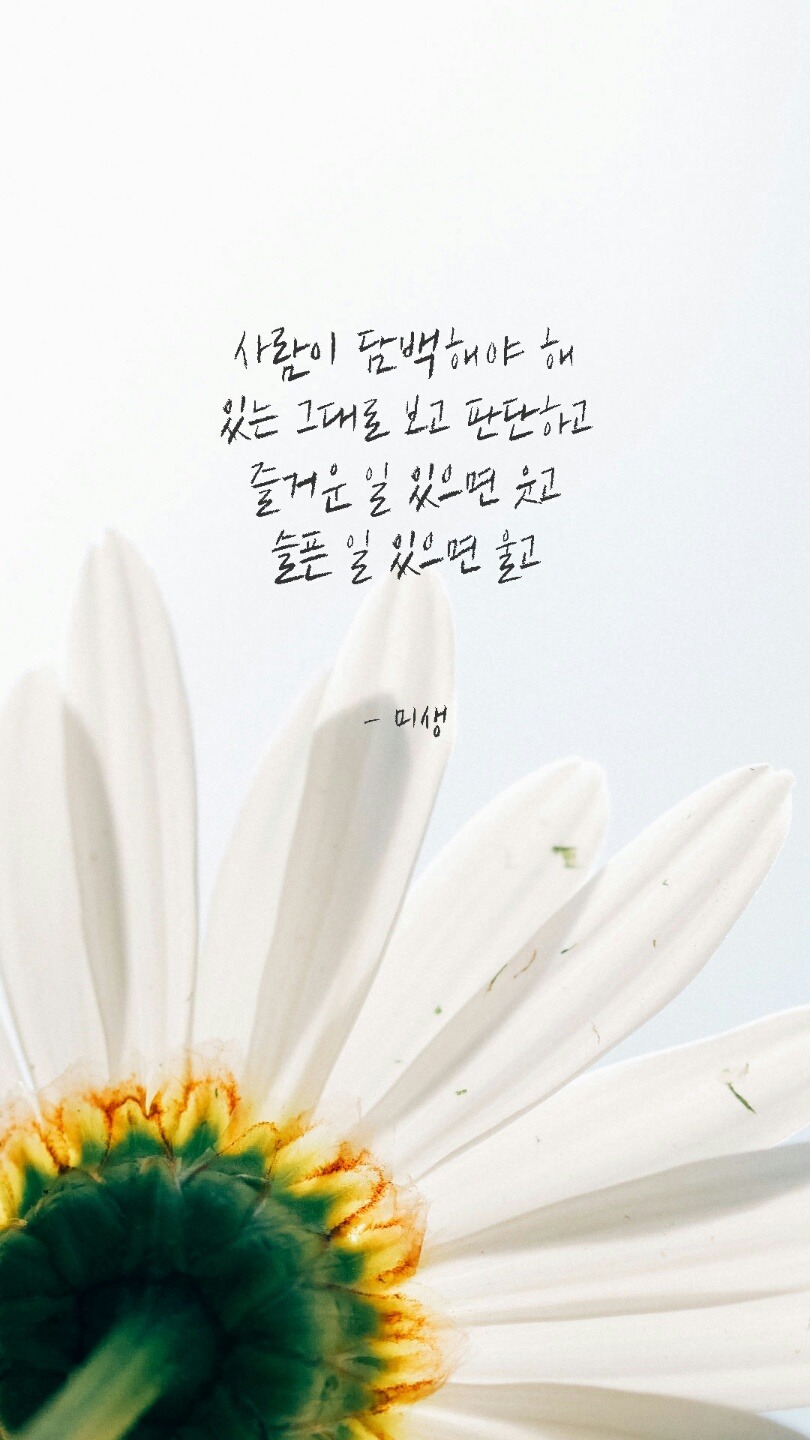 사람이 담백해야 해
있는 그대로 보고 판단하고
즐거운 일 있으면 웃고
슬픈 일 있으면 울고
- 미생